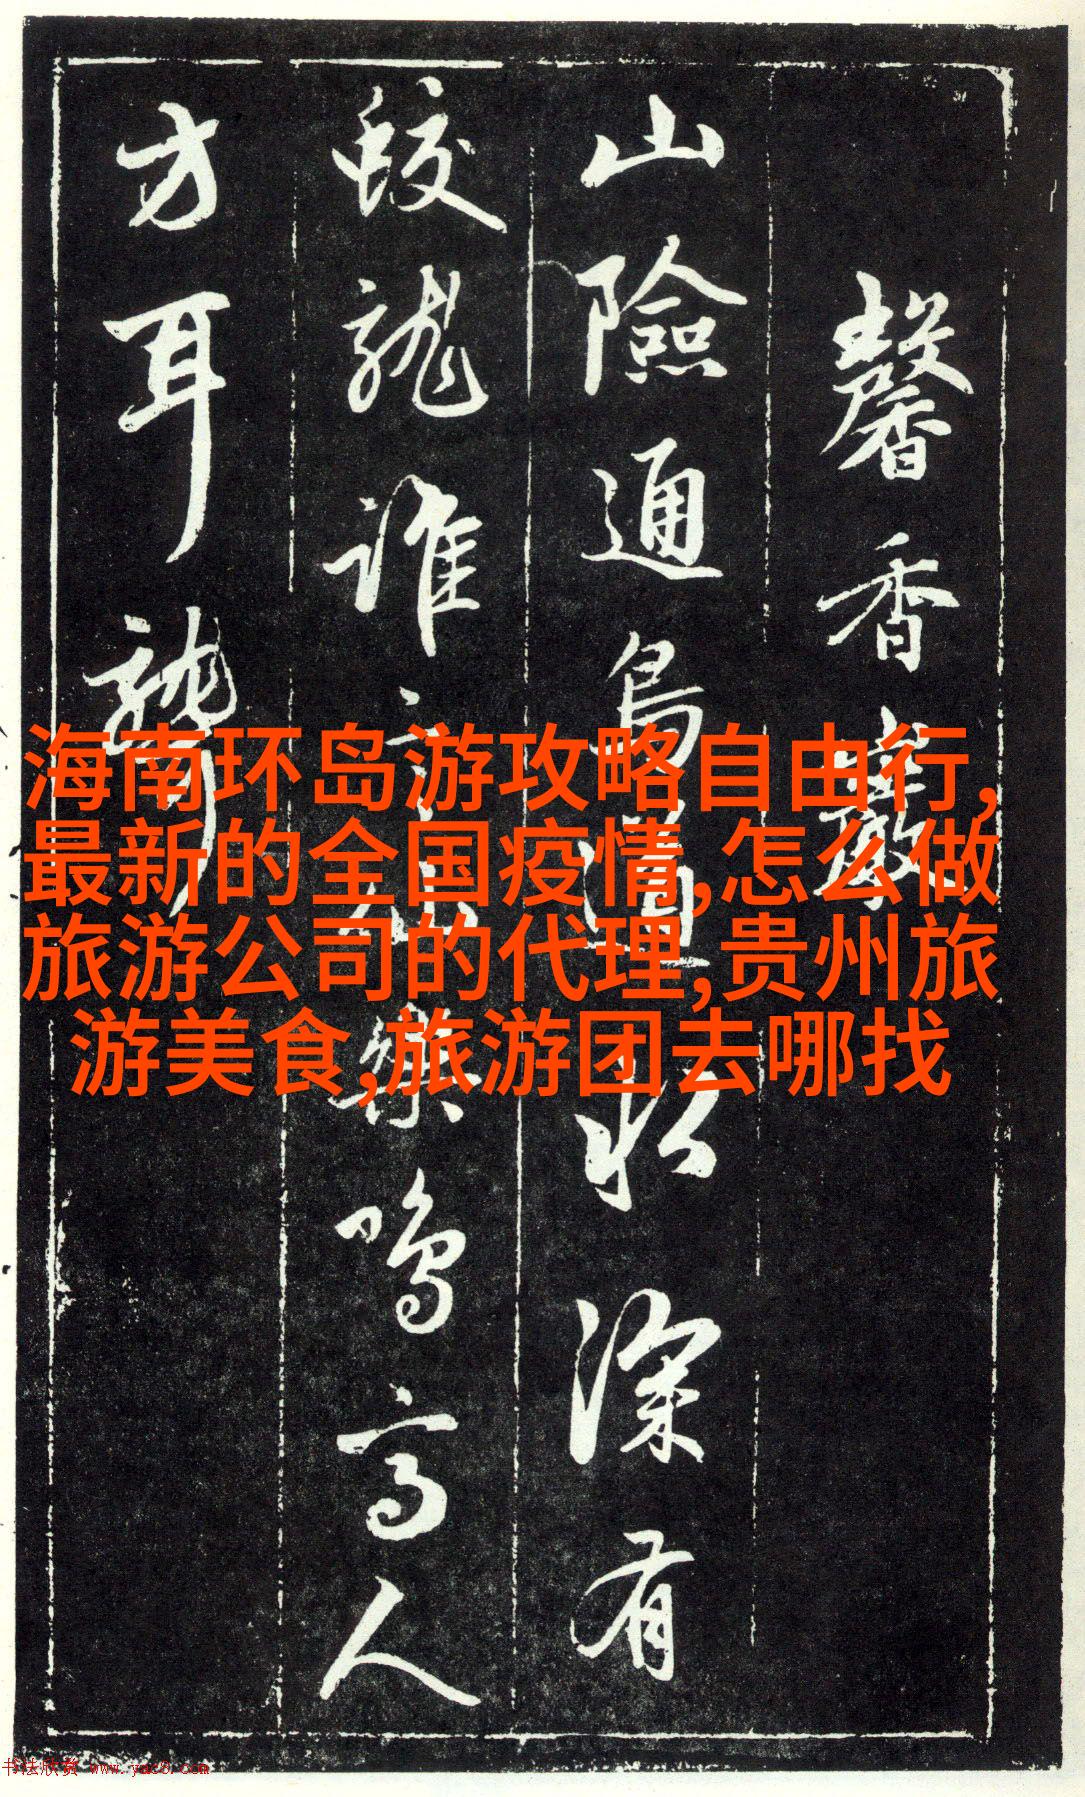 馨香巖
山險通鳥道水深有
蛟龍誰言樂鳴高人
方耳聾
海南环岛游攻略自由行,
最新的全国疫情,怎么做
旅游公司的代理,贵州旅
游美食,旅游团去哪找
书法欣赏 www.yac8.com